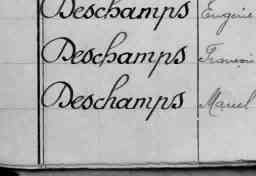 Deschamps Eugénie
Deschamps François
Deschamps Marcel